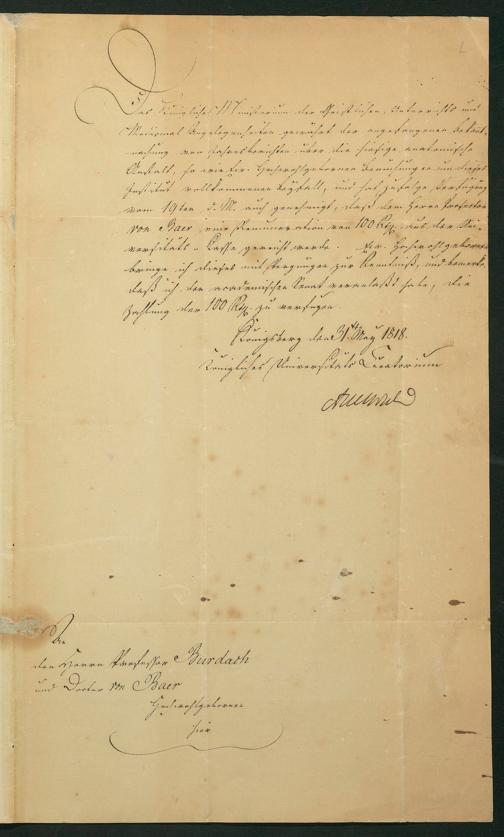 Das Königliche Ministerium der Geistlichen, Unterrichts und
Medicinal Angelegenheiten gewährt der angefangenen Bekannt-
machung von Jahresberichten über die hiesige anatomische
Anstalt, so wie Hochwohlgeboren Bemühungen um dieses
Institut vollkommenen Beyfall, und hat zufolge Verfügung
vom 19ten d. M. auch genehmigt, daß dem Herrn Prosector
von Baer eine Remuneration von 100 Rtlr. aus der Uni-
versitäts-Casse gereicht werde. Ew. Hochwohlgeboren
bringe ich dieses mit Vergnügen zur Kenntniß, und bemerke,
daß ich den academischen Senat veranlaßt habe, die
Zahlung der 100 Rtlr. zu verfügen.
Königsberg den 31t May 1818.
Königliches Universitäts Curatorium
An
den Herrn Professor Burdach
und Doctor von Baer
Hochwohlgeboren
hier